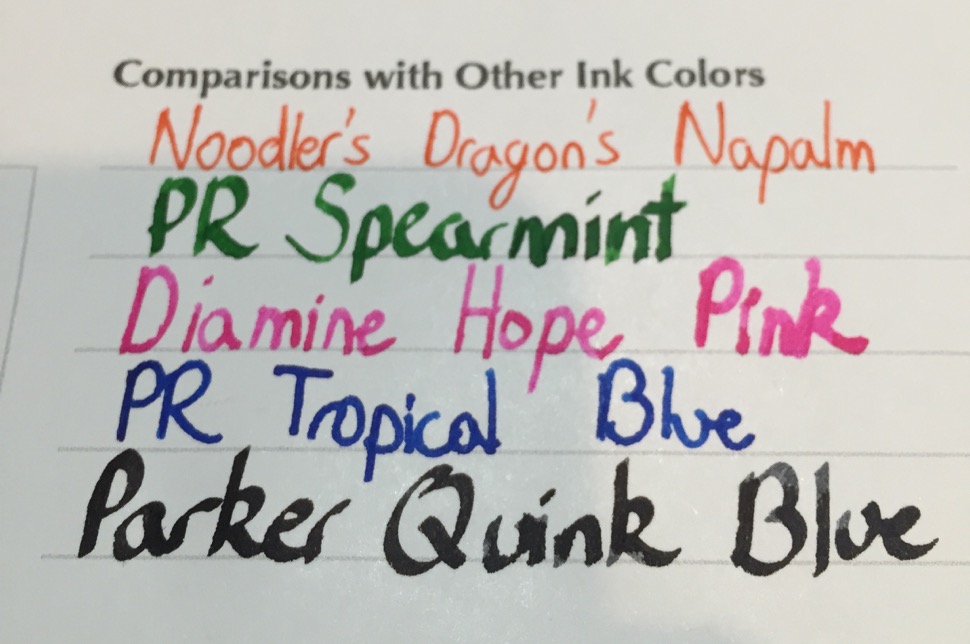 Comparisons with Other Ink Colors
Noodler's Dragon's Napalm
PR Spearmint
Diamine Hope Pink
PR Tropical Blue
Parker Quink Blue